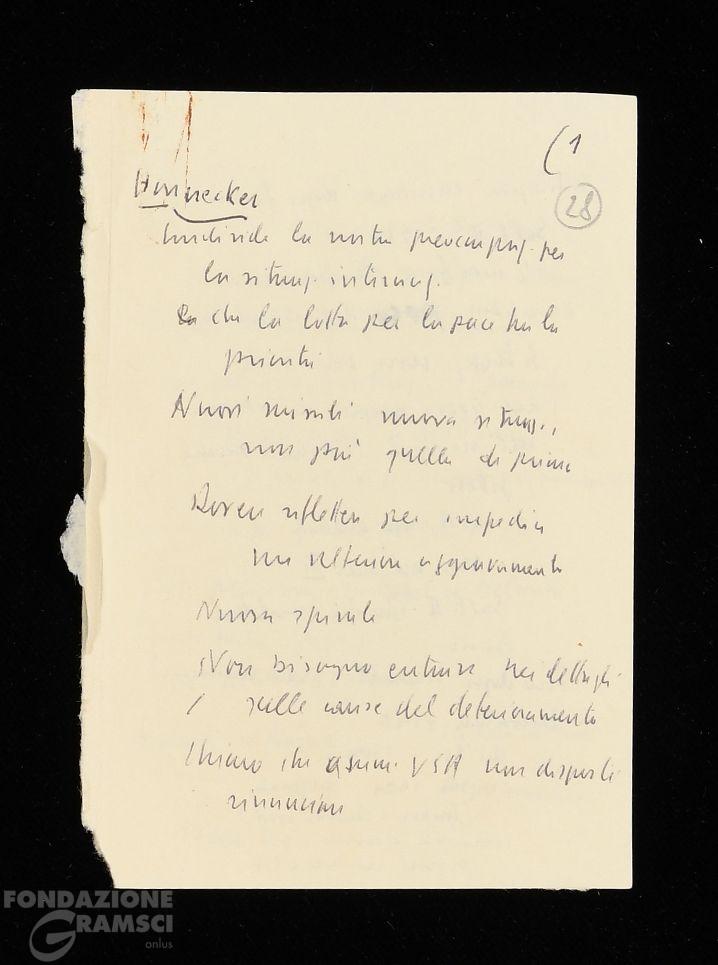 (1
28
Honnecker
Condivide la nostra preoccupaz. per
la situaz. internaz.
che la lotta per la pace ha la
priorità
Nuovi missili nuova situaz.,
non più quella di prima
Dovere riflettere per impedire
un ulteriore aggravamento
Nuova spirale
Non bisogna entrare nei dettagli
sulle cause del deterioramento
Chiaro che USA non disposti
rinunciare
FONDAZIONE
GRAMSCI
onlus